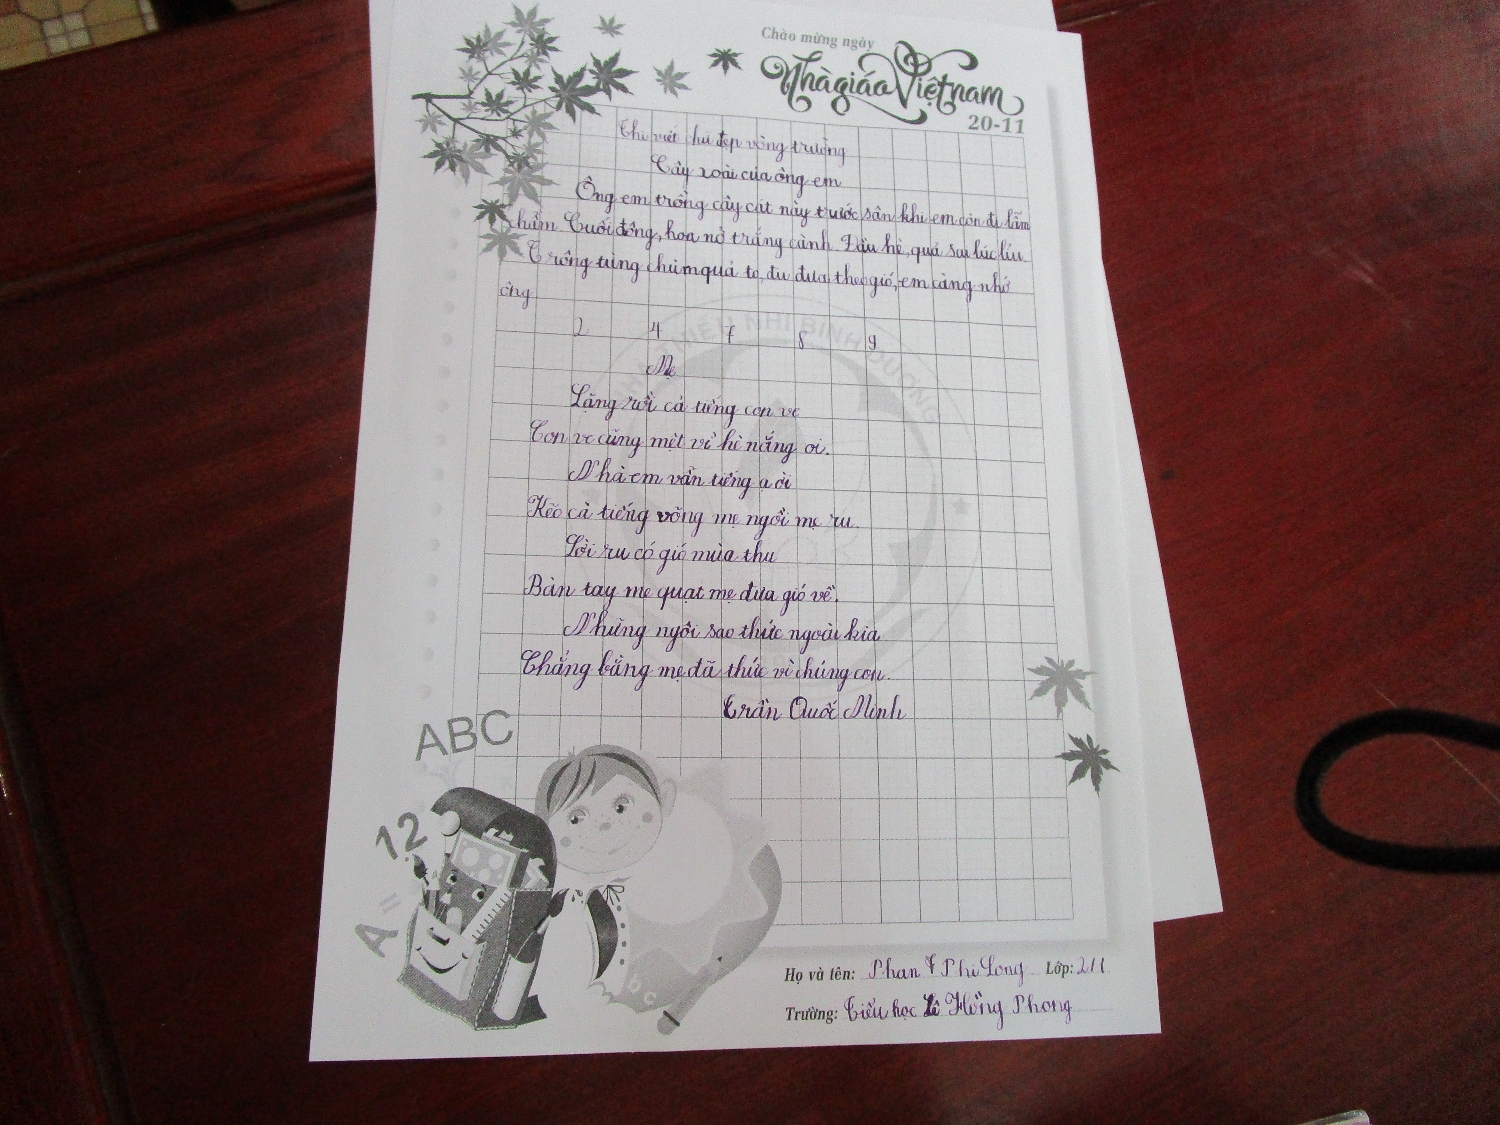 Chào mừng ngày
Nhà giáo Việt nam
20-11
Thi viết chữ đẹp vòng trường
Cây xoài của ông em
Ông em trồng cây cát này trước sân khi em còn đi lẫm
chẫm. Cuối đông, hoa nở trắng cành. Đầu hè, quả sai lúc lỉu
Trông từng chùm quả to, đu đưa theo gió, em càng nhớ
ông
2 4 7 8 9
Mẹ
Lặng rồi cả tiếng con ve
Con ve cũng mệt vì hè nắng oi.
Nhà em vẫn tiếng ạ ời
Kẽo cà tiếng võng mẹ ngồi mẹ ru.
Lời ru có gió mùa thu
Bàn tay mẹ quạt mẹ đưa gió về.
Những ngôi sao thức ngoài kia
Chẳng bằng mẹ đã thức vì chúng con.
Trần Quốc Minh
NHI BÌNH DƯƠNG
ABC
12
A =
b c
Họ và tên: Phan Phi Long Lớp: 211
Trường: Tiểu học Lê Hồng Phong